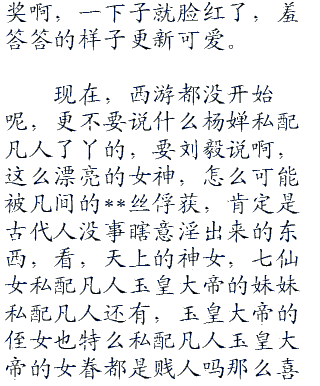 奖啊，一下子就脸红了，羞
答答的样子更新可爱。
现在，西游都没开始
呢，更不要说什么杨婵私配
凡人了丫的，要刘毅说啊，
这么漂亮的女神，怎么可能
被凡间的**丝俘获，肯定是
古代人没事瞎意淫出来的东
西，看，天上的神女，七仙
女私配凡人玉皇大帝的妹妹
私配凡人还有，玉皇大帝的
侄女也特么私配凡人玉皇大
帝的女眷都是贱人吗那么喜